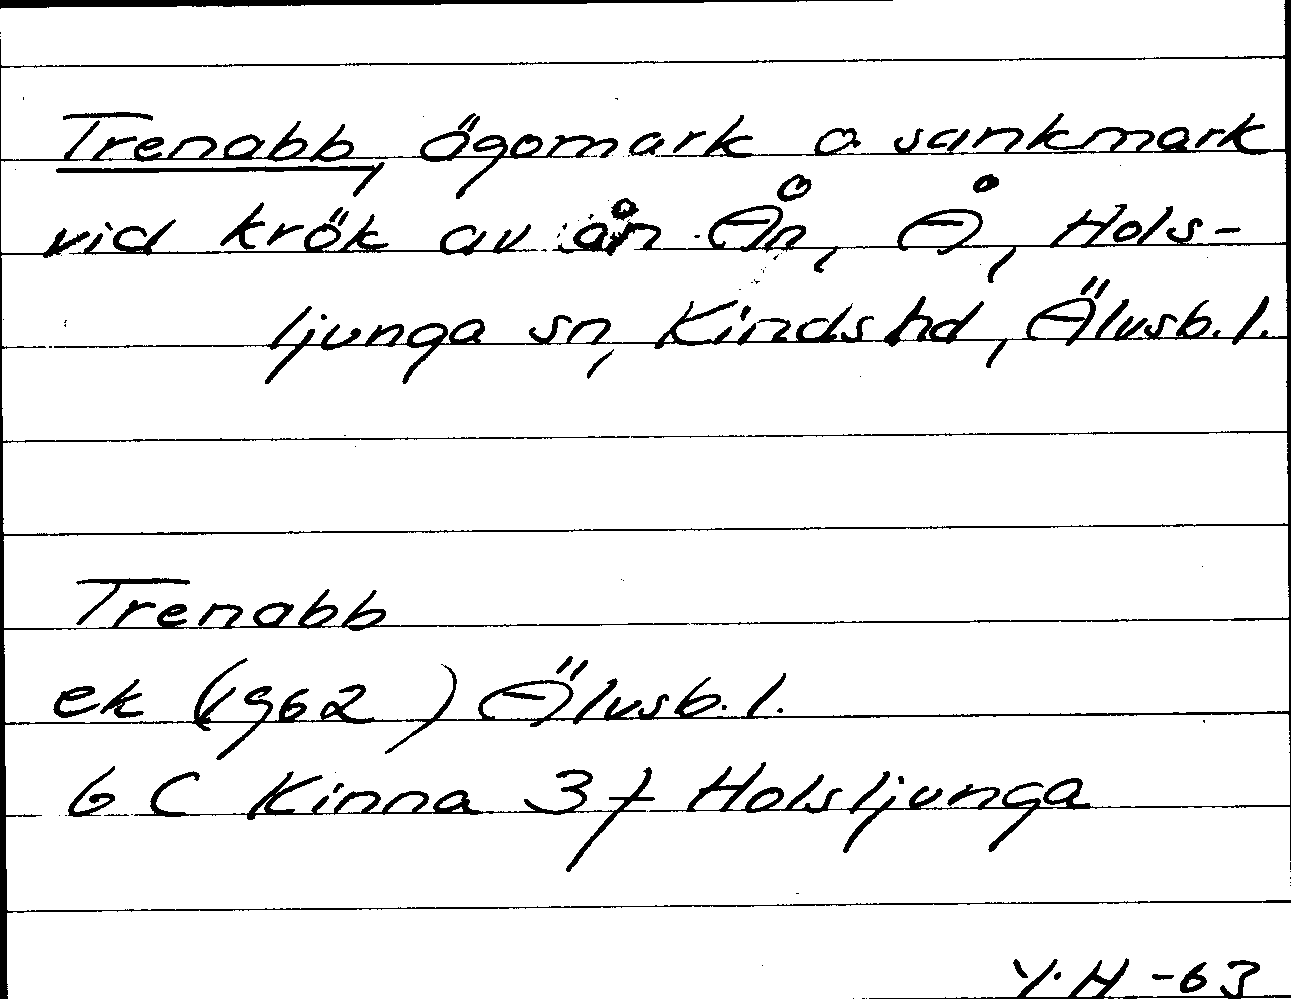 Trenabb, ägomark o. sankmark
vid krök av ån Ån, Å, Hols-
ljunga sn, Kinds hd, Älvsb. l.
Trenabb
ek (1962) Älvsb. l.
6 C Kinna 3 f Holsljunga
Y. H -63